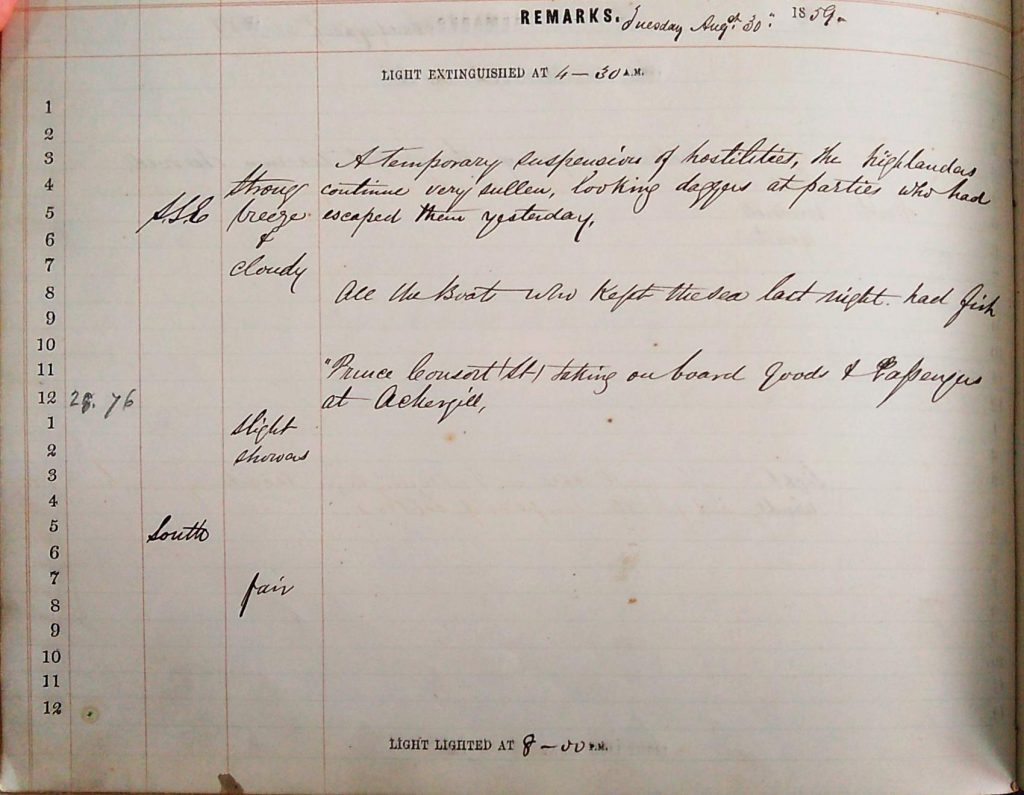 REMARKS. Tuesday Augst 30th 1859.
LIGHT EXTINGUISHED AT 4-30 A.M.
1
2
3 A temporary suspension of hostilities, the highlanders
4 strong continue very sullen, looking daggers at parties who had
5 S.S.E breeze escaped them yesterday,
6 &
7 cloudy
8 All the Boat who Kept the sea last night. had fish
9
10
11 "Prince Consort" (St) taking on board goods & Passengers
12 28. 76 at Ackergill,
1 slight
2 showers
3
4
5 South
6
7 fair
8
9
10
11
12
LIGHT LIGHTED AT 8-00 P.M.